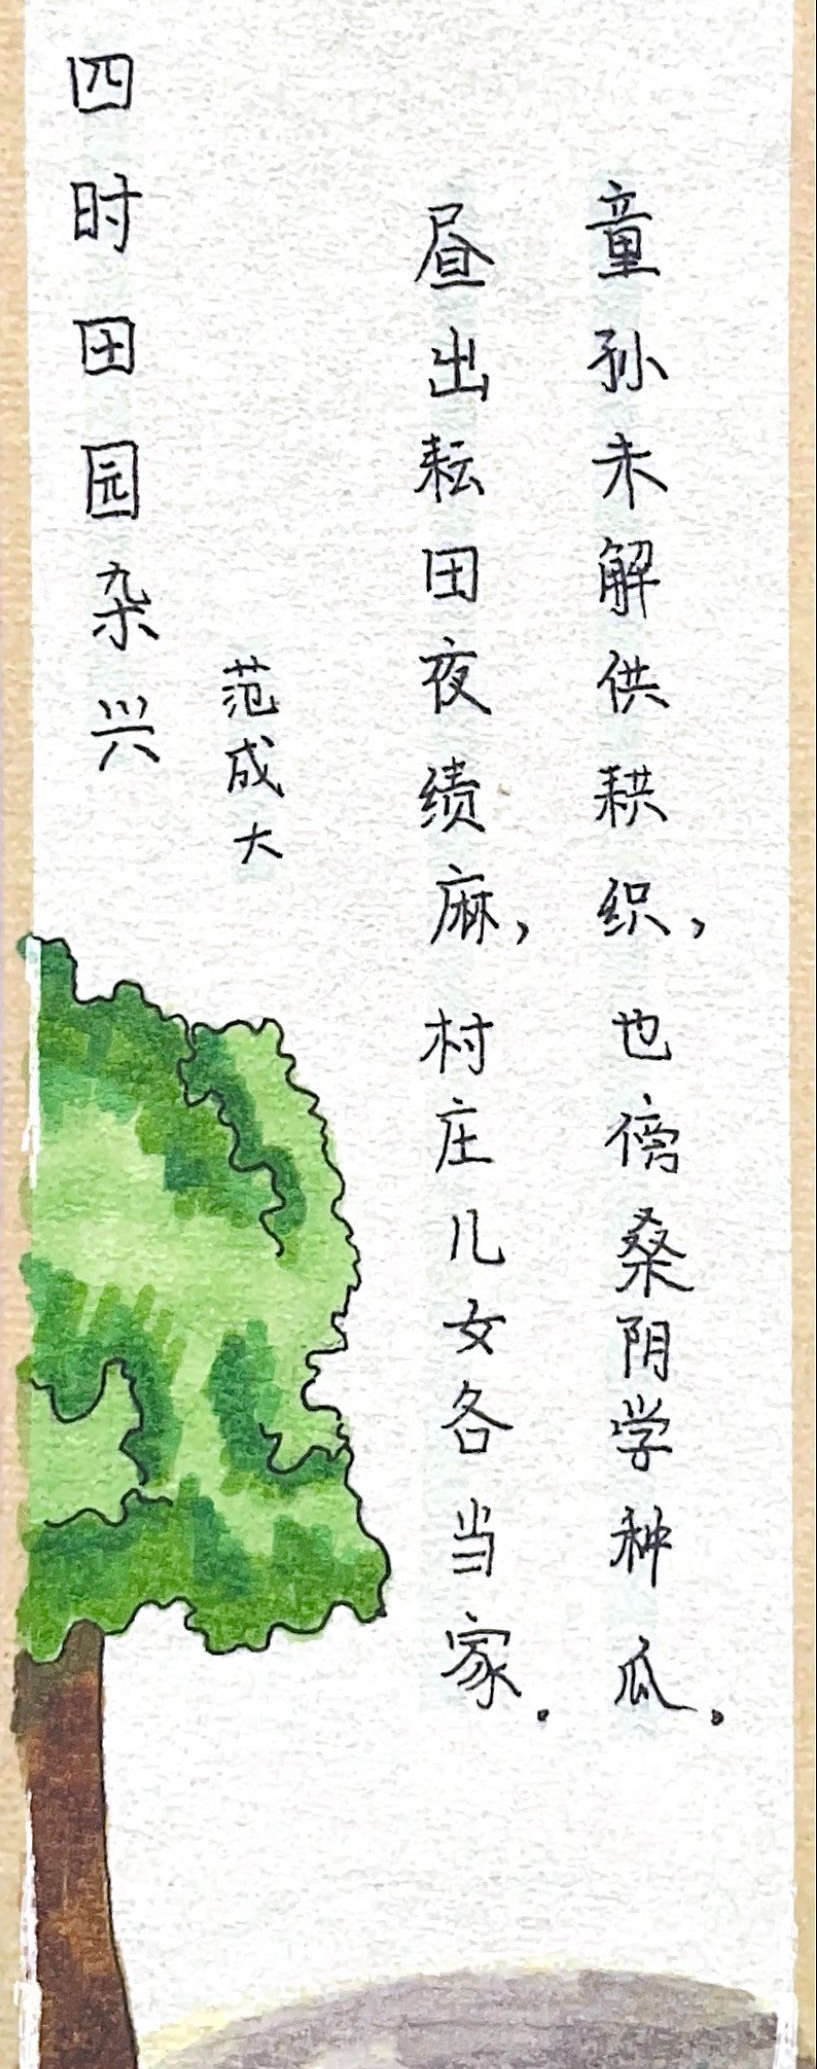 四时田园杂兴
范成大
昼出耘田夜绩麻，村庄儿女各当家。
童孙未解供耕织，也傍桑阴学种瓜。